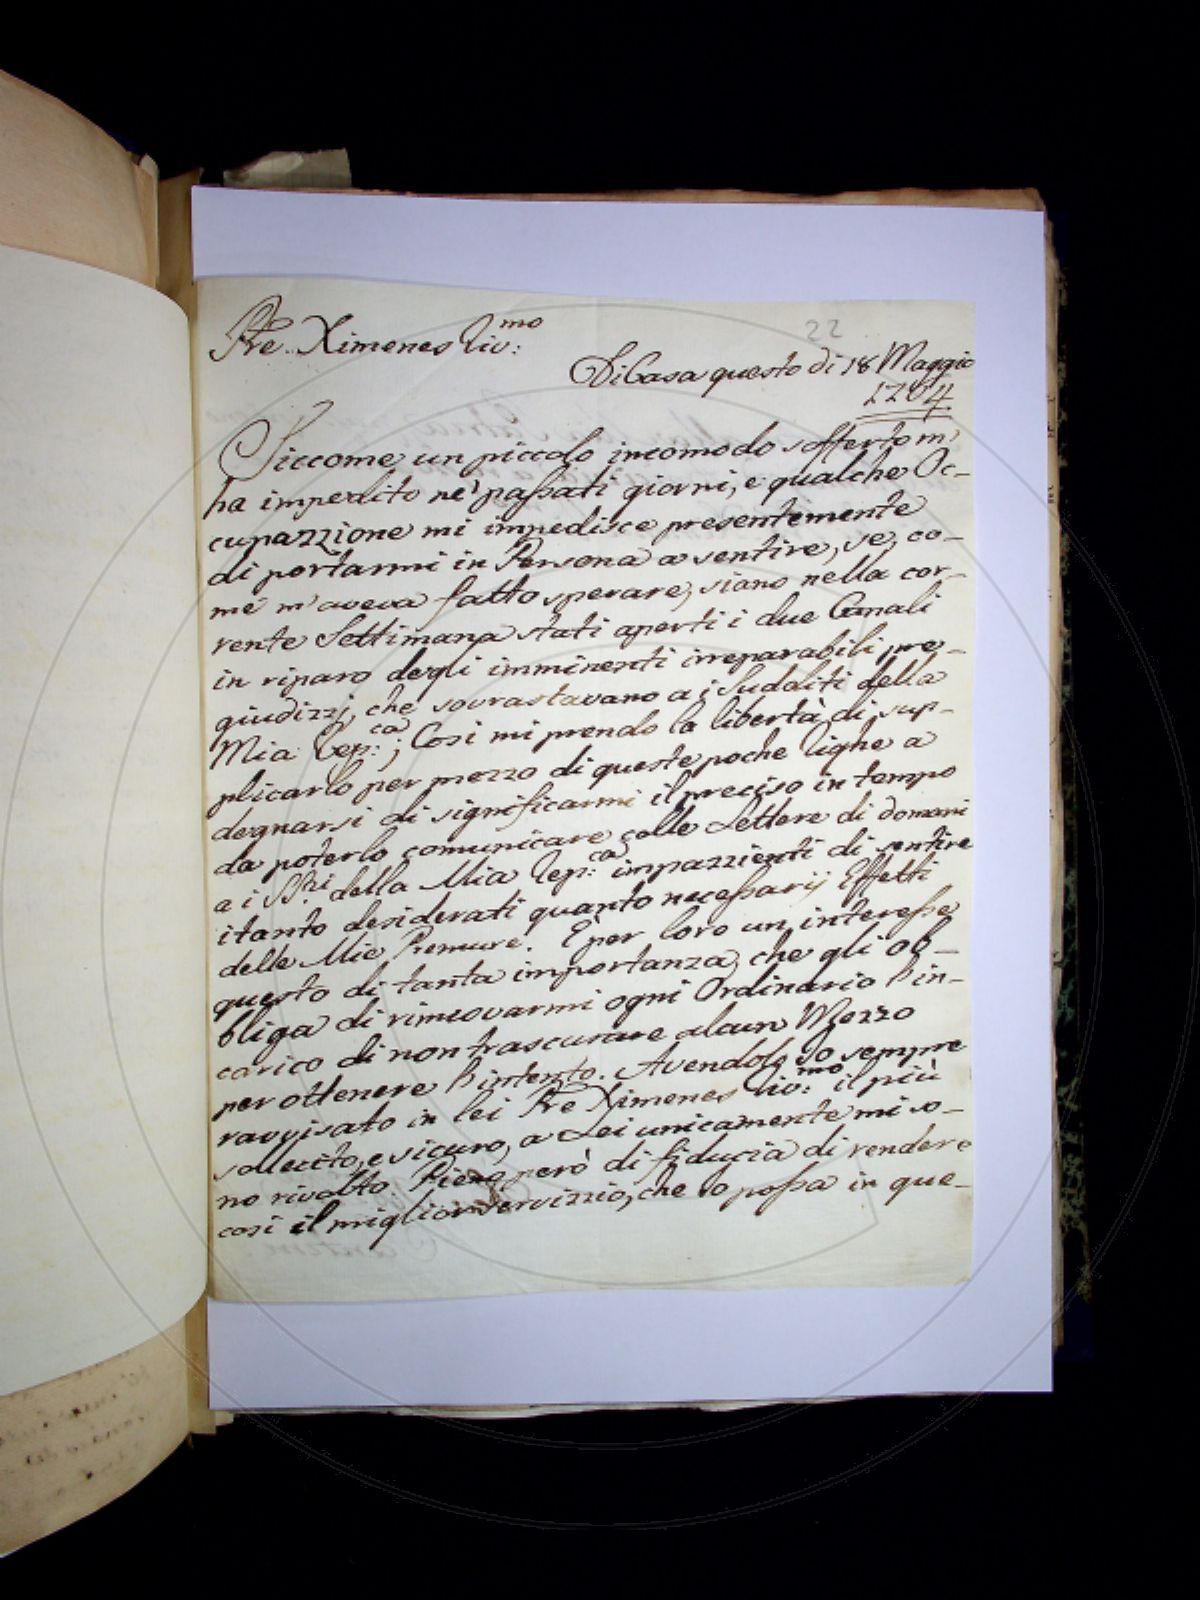 Pre. Ximenes Riv:mo
22
Di Casa questo di 18 Maggio
1764
Siccome un piccolo incomodo sofferto m'
ha impedito ne' passati giorni, e qualche Oc-
cupazzione mi impedisce presentemente
di portarmi in Persona a sentire, se, co-
me m'aveva fatto sperare, siano nella cor-
rente Settimana stati aperti i due Canali
in riparo degli imminenti irreparabili pre-
giudizzi, che sovrastavano a i Sudditi della
Mia Rep:ca; Così mi prendo la libertà di sup-
plicarlo per mezzo di queste poche righe a
degnarsi di significarmi il preciso in tempo
da poterlo comunicare colle Lettere di domani
a i SS.ri della Mia Rep:ca impazzienti di sentire
i tanto desiderati quanto necessarij Effetti
delle Mie Premure. È per loro un interesse
questo di tanta importanza, che gli ob-
bliga di rinnovarmi ogni Ordinario l'in-
carico di non trascurare alcun Mezzo
per ottenere l'intento. Avendolo Io sempre
ravvisato in lei Pre Ximenes Riv:mo il più
sollecito, e sicuro, a Lei unicamente mi so-
no rivolto. Pieno però di fiducia di rendere
così il miglior servizzio, che Io possa in que-